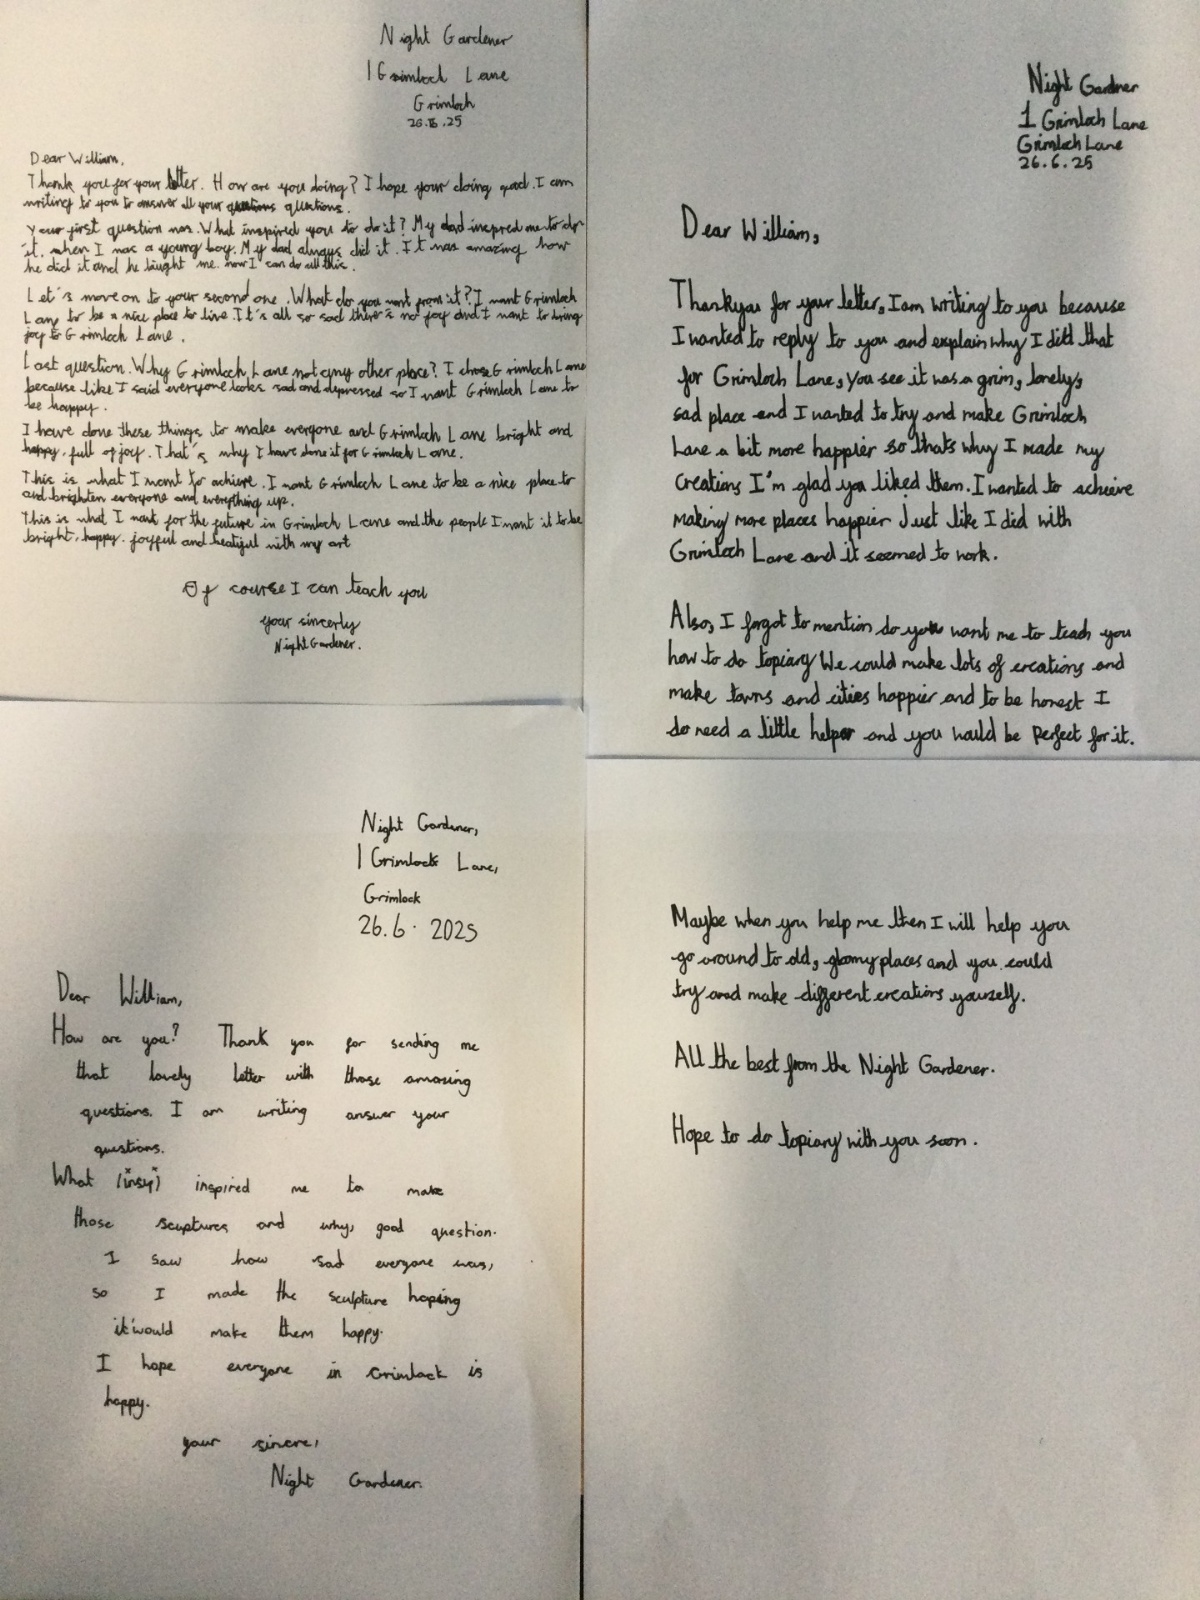 Night Gardener
1 Grimloch Lane
Grimloch
26.6.25
Dear William,
Thank you for your letter. How are you doing? I hope your doing good. I am
writing to you to answer all your questions.
Your first question was. What inspired you to do it? My dad inspred me to do
it, when I was a young boy. My dad always did it. It was amazing how
he did it and he taught me. now I can do all this.
Let's move on to your second one. What do you want from it? I want Grimloch
Lany to be a nice place to live. It's all so sad there's no joy and I want to bring
joy to Grimloch Lane.
Last question. Why Grimloch Lane not any other place? I chose Grimloch Lane
because like I said everyone looks sad and depressed so I want Grimloch Lane to
be happy.
I have done these things to make everyone and Grimloch Lane bright and
happy, full of joy. That's why I have done it for Grimloch Lane.
This is what I want to achieve. I want Grimloch Lane to be a nice place to
and brighten everyone and everything up.
This is what I want for the future in Grimloch Lane and the people I want it to be
bright, happy. joyful and beatiful with my art
Of course I can teach you
your sincerly
Night Gardener.
Night Gardner
1 Grimloch Lane
Grimloch Lane
26.6.25
Dear William,
Thankyou for your letter, I am writing to you because
I wanted to reply to you and explain why I did that
for Grimloch Lane, you see it was a grim, lonely,
sad place and I wanted to try and make Grimloch
Lane a bit more happier so thats why I made my
creations I'm glad you liked them. I wanted to achieve
making more places happier Just like I did with
Grimloch Lane and it seemed to work.
Also, I forgot to mention do you want me to teach you
how to do topiary We could make lots of creations and
make towns and cities happier and to be honest I
do need a little helper and you would be perfect for it.
Night Gardener,
1 Grimlock Lane,
Grimlock
26.6.2025
Dear William,
How are you? Thank you for sending me
that lovely letter with those amazing
questions. I am writing answer your
questions.
What (insy) inspired me to make
those scuptures and why, good question.
I saw how sad everyone was,
so I made the sculpture hoping
it would make them happy.
I hope everyone in Grimlock is
happy.
your sincre,
Night Gardener.
Maybe when you help me then I will help you
go around to old, gloomy places and you could
try and make different creations yourself.
All the best from the Night Gardener.
Hope to do topiary with you soon.